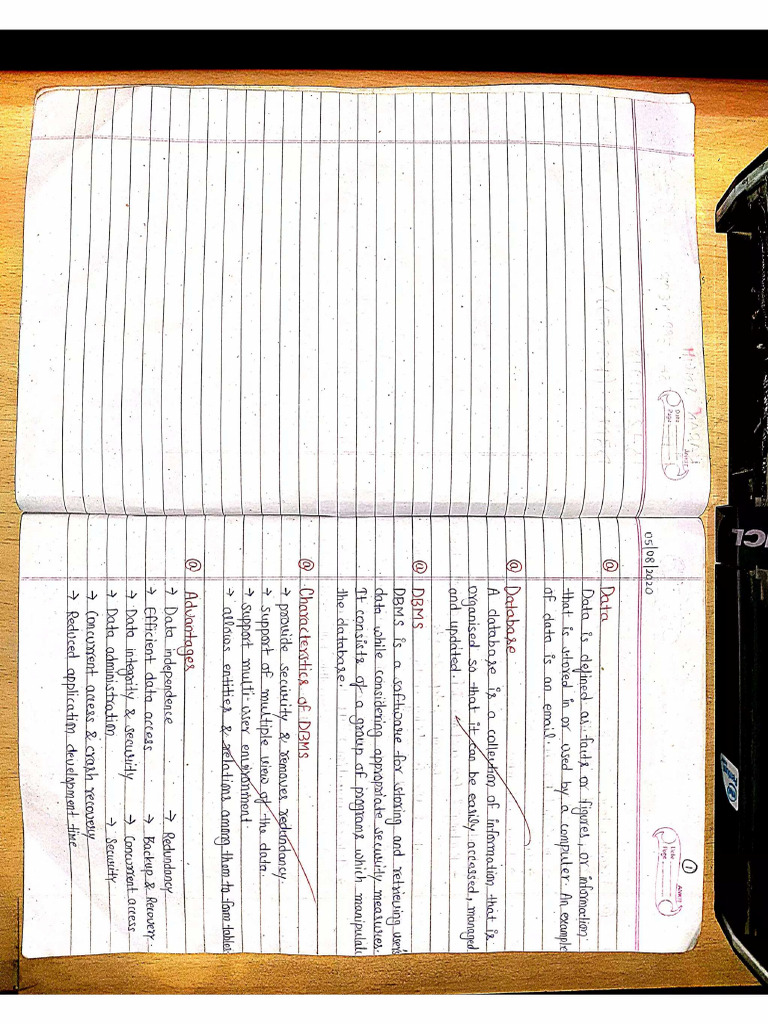 05/08/2020
1
@ Data
Data is defined as facts or figures, or information
that is stored in or used by a computer. An example
of data is an email.
@ Database
A database is a collection of information that is
organised so that it can be easily accessed, managed
and updated.
@ DBMS
DBMS is a software for storing and retrieving user's
data while considering appropriate security measures.
It consists of a group of programs which manipulate
the database.
@ Characteristics of DBMS
→ provide security & removes redundancy.
→ support of multiple view of the data.
→ support multi-user environment
→ allows entities & relations among them to form tables
@ Advantages
→ Data independence → Redundancy
→ Efficient data access → Backup & Recovery
→ Data integrity & security → Concurrent access
→ Data administration → Security
→ Concurrent access & crash recovery
→ Reduced application development time
Date
Page